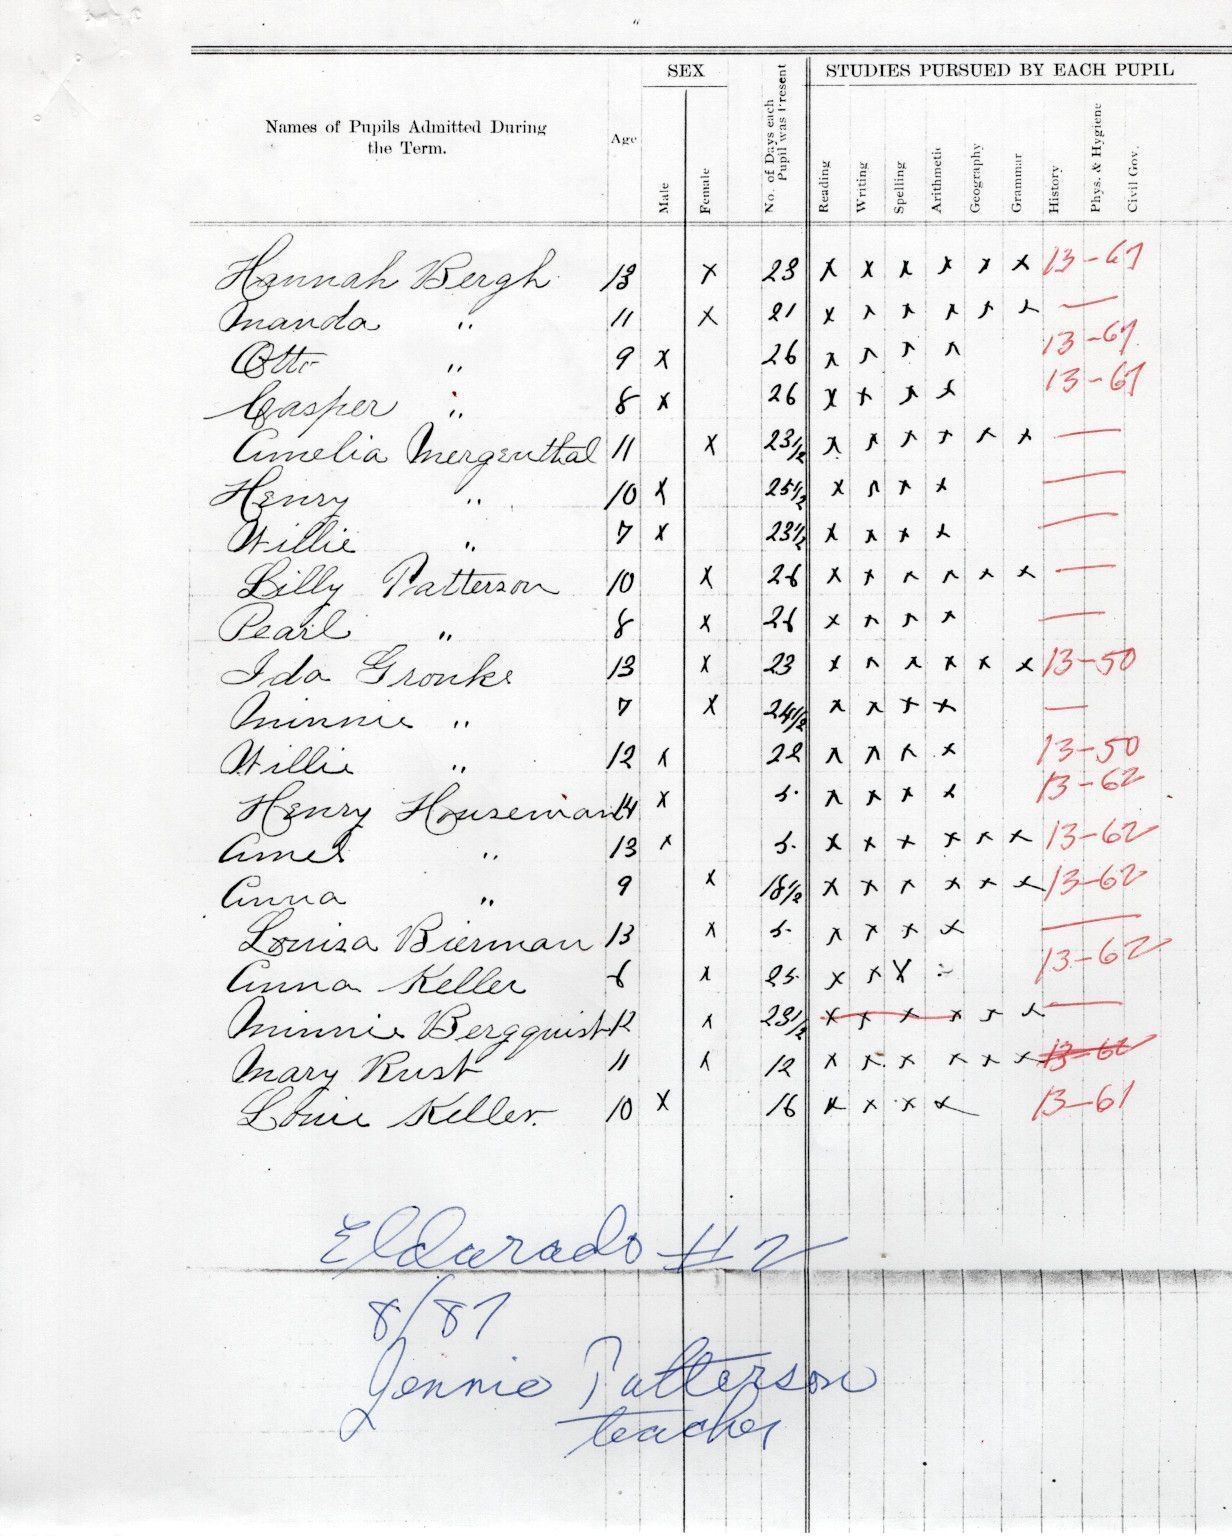 SEX
STUDIES PURSUED BY EACH PUPIL
Names of Pupils Admitted During
the Term.
Age
Male
Female
No. of Days each
Pupil was Present
Reading
Writing
Spelling
Arithmetic
Geography
Grammar
History
Phys. & Hygiene
Civil Gov.
Hannah Bergh 13 x 23 x x x x x x 13-67
Manda " 11 x 21 x x x x x x —
Otto " 9 x 26 x x x x 13-67
Casper " 8 x 26 x x x x 13-67
Amelia Mergenthal 11 x 23 1/2 x x x x x x —
Henry " 10 x 25 1/2 x x x x —
Willie " 7 x 23 1/2 x x x x —
Lilly Patterson 10 x 26 x x x x x x —
Pearl " 8 x 26 x x x x —
Ida Gronke 13 x 23 x x x x x x 13-50
Minnie " 7 x 24 1/2 x x x x —
Willie " 12 x 22 x x x x 13-50
Henry Houseman 14 x 5 x x x x 13-62
Amel " 13 x 5 x x x x x x 13-62
Anna " 9 x 18 1/2 x x x x x x 13-62
Louisa Bierman 13 x 5 x x x x —
Anna Keller 6 x 25 x x x 13-62
Minnie Bergquist 12 x 23 1/2 x x x x x x —
Mary Rust 11 x 12 x x x x x x 13-62
Louie Keller. 10 x 16 x x x x 13-61
Eldurado #2
8/87
Jennie Patterson
teacher